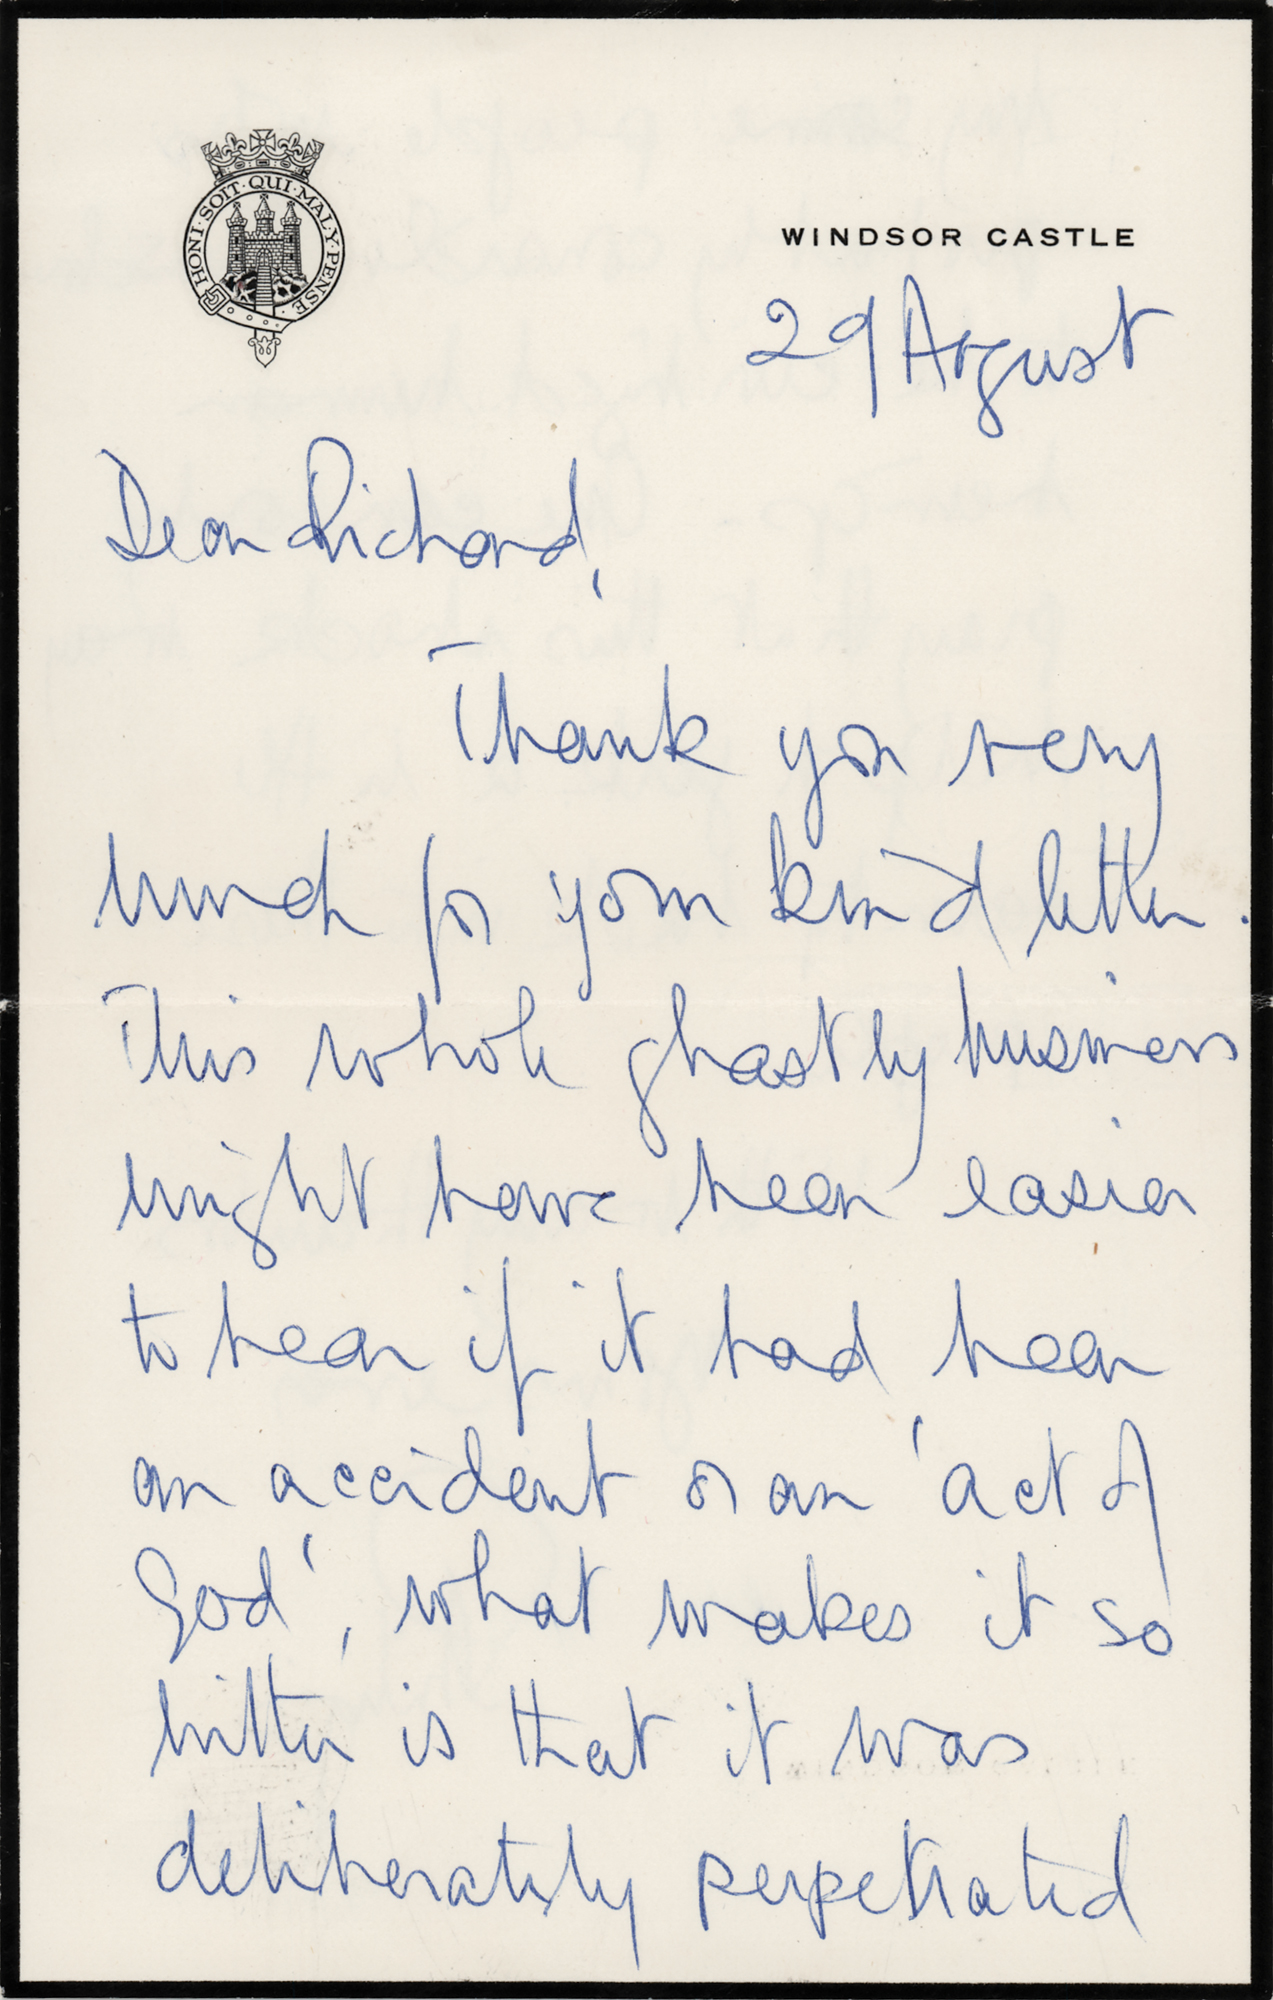 HONI · SOIT · QUI · MAL · Y · PENSE ·
WINDSOR CASTLE
29 August
Dear Richard,
Thank you very
much for your kind letter.
This whole ghastly business
might have been easier
to bear if it had been
an accident or an 'act of
God', what makes it so
bitter is that it was
deliberately perpetrated